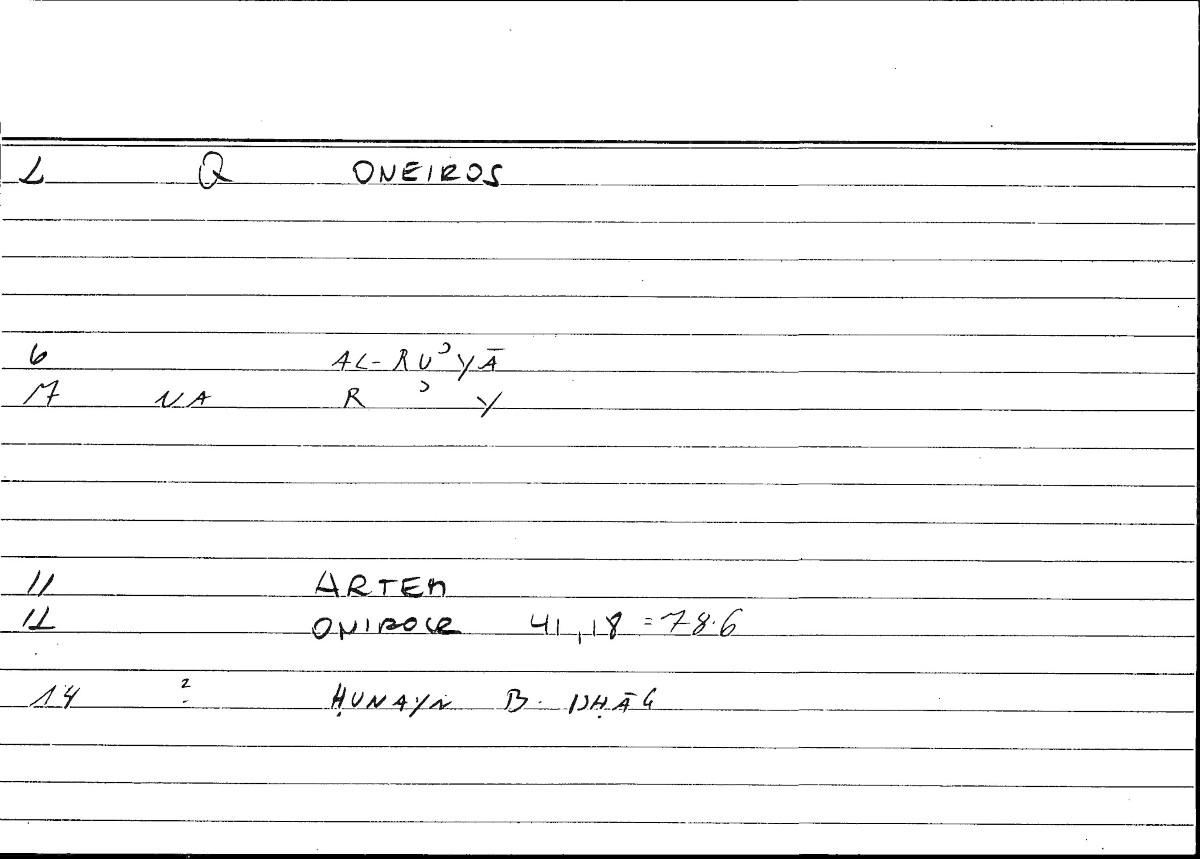 2 Q ONEIROS
6 AL-RUʾYĀ
7 NA R ʾ Y
11 ARTEM
12 ONIROCR 41,18 = 78.6
14 ? ḤUNAYN B. ISḤĀQ